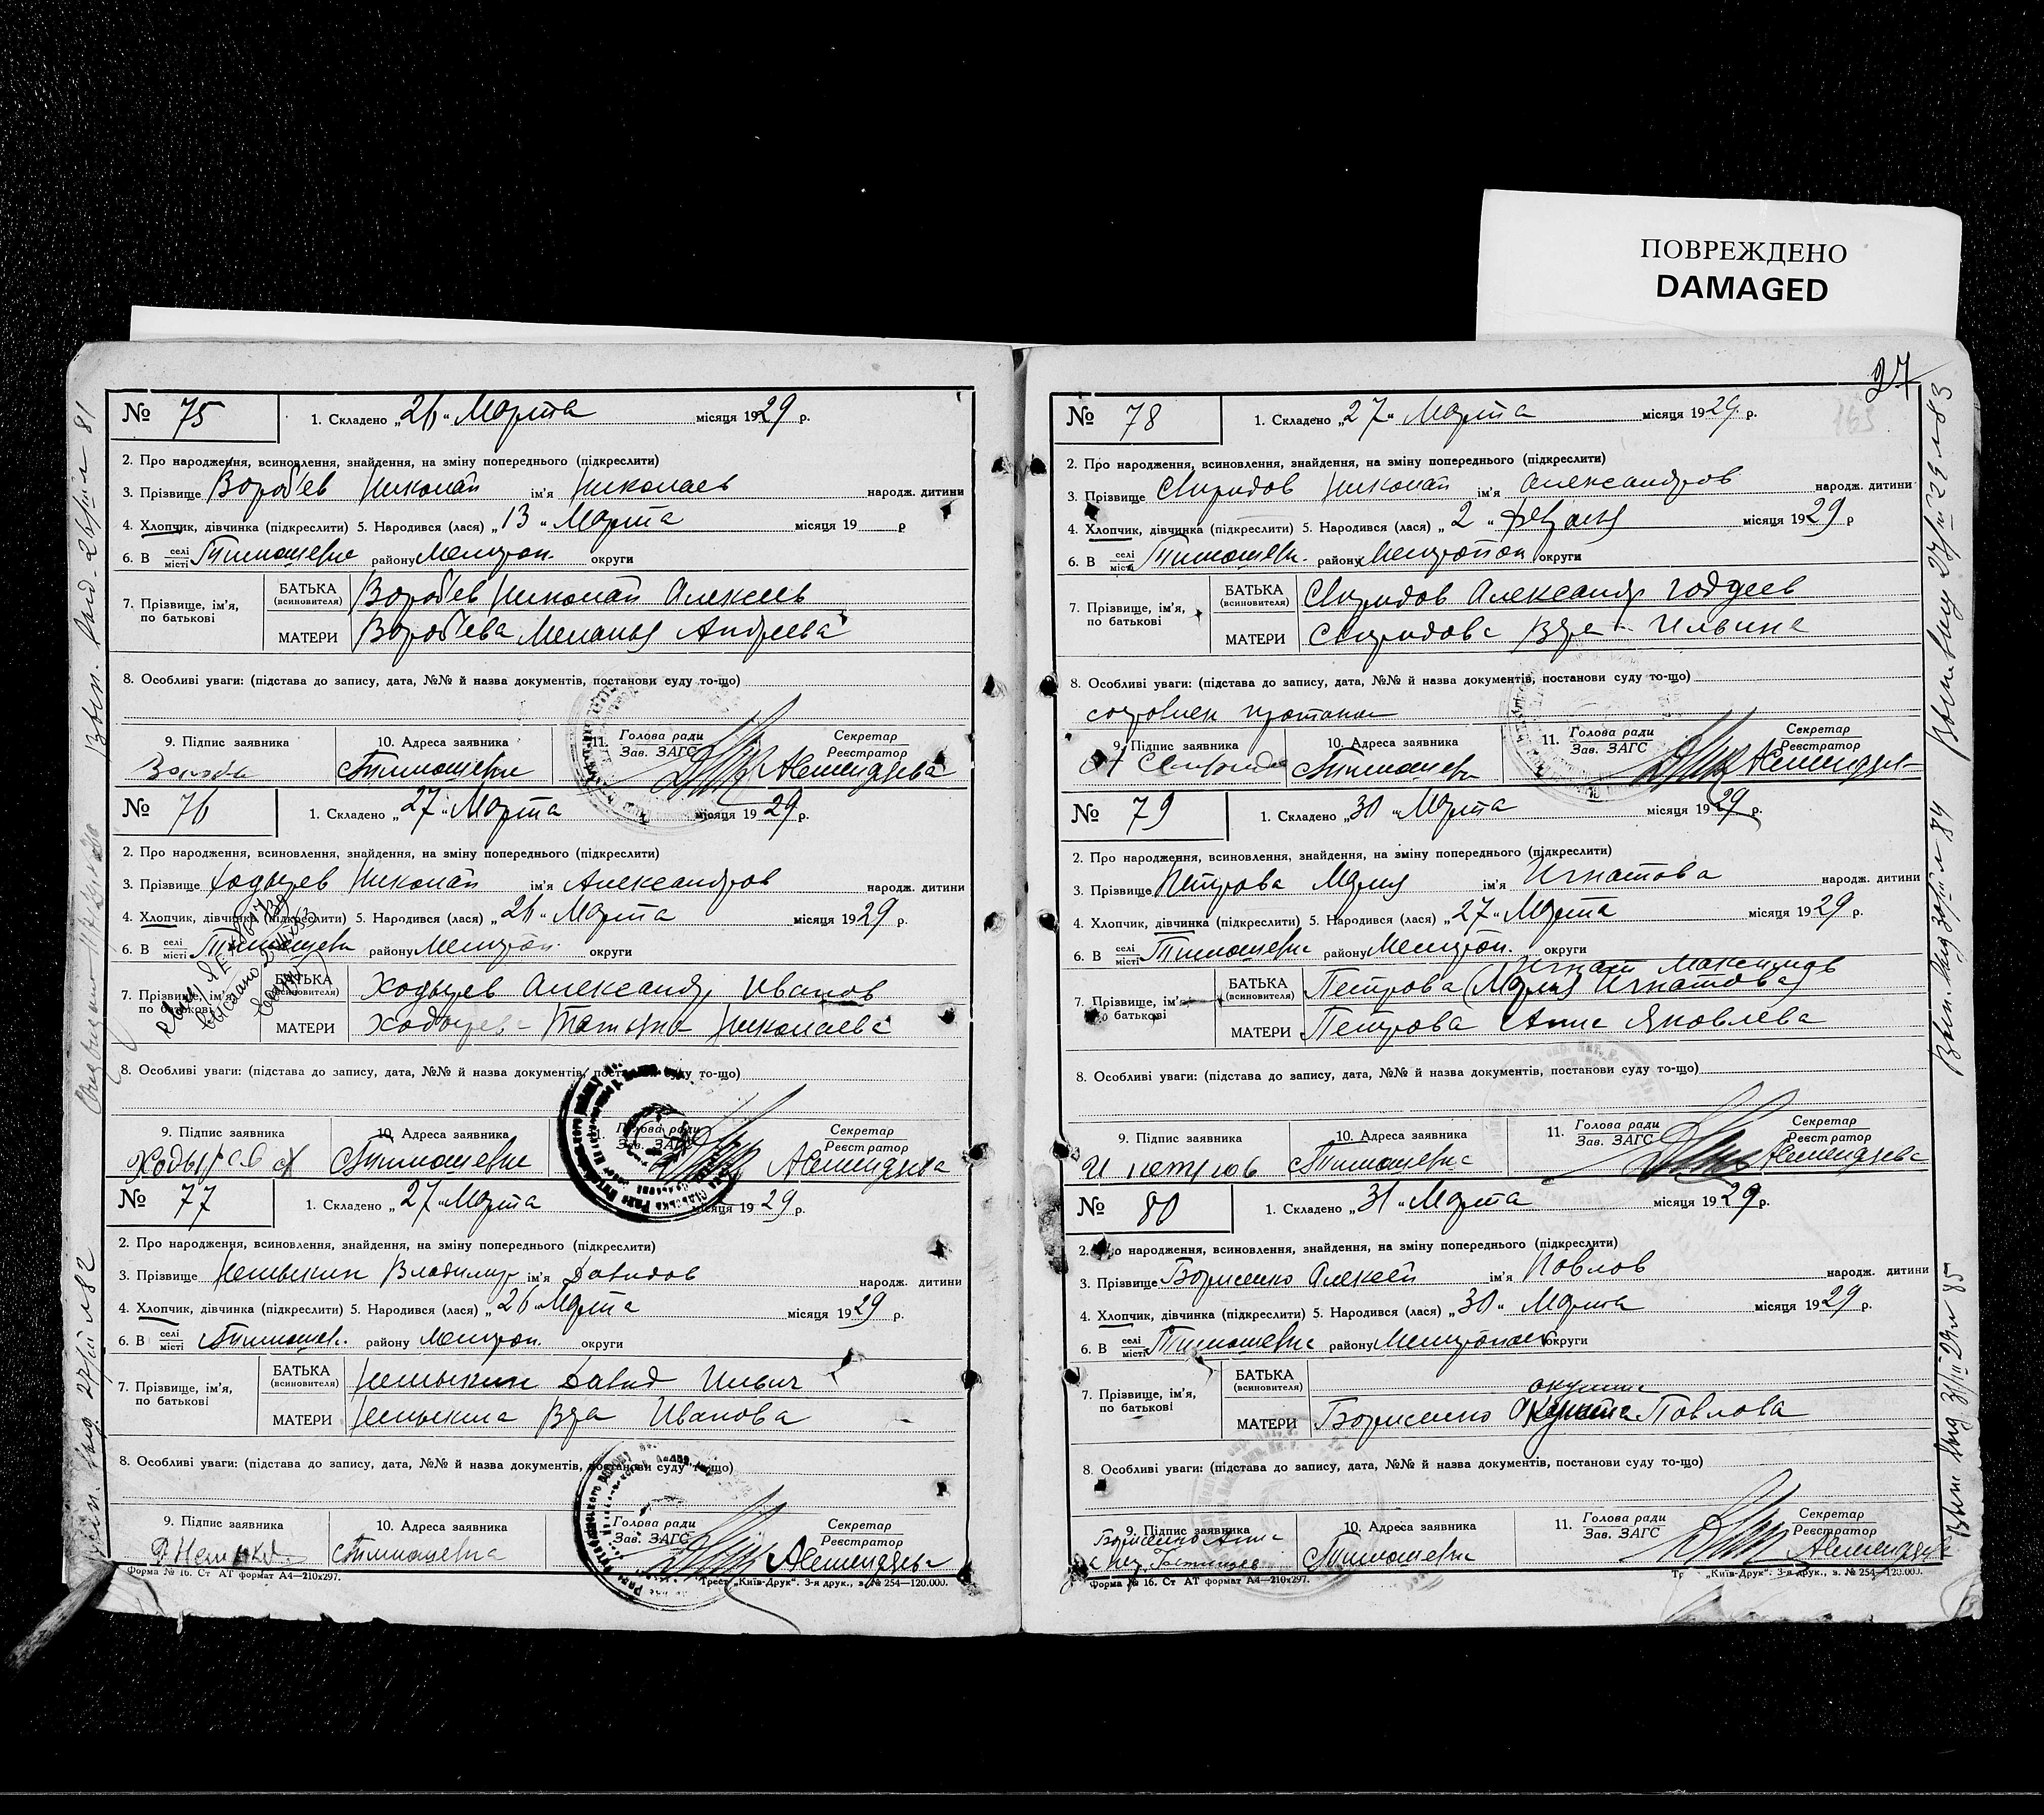 ПОВРЕЖДЕНО
DAMAGED
№ 75
1. Складено „26“ Марта місяця 1929 р.
2. Про народження, всиновлення, знайдення, на зміну попереднього (підкреслити)
3. Прізвище Воробъев Николай ім'я Николаев народж. дитини
4. Хлопчик, дівчинка (підкреслити) 5. Народився (лася) „13“ Марта місяця 19 р
6. В селі місті Тимошевке району Мелитоп. округи
7. Прізвище, ім'я, по батькові
БАТЬКА (всиновителя) Воробъев Николай Алексеев
МАТЕРИ Воробъева Меланья Андреева
8. Особливі уваги: (підстава до запису, дата, №№ й назва документів, постанови суду то-що)
9. Підпис заявника
10. Адреса заявника Тимошевка
11. Голова ради Зав. ЗАГС
Секретар Реєстратор
№ 76
1. Складено „27“ Марта місяця 1929 р.
2. Про народження, всиновлення, знайдення, на зміну попереднього (підкреслити)
3. Прізвище Ходырев Николай ім'я Александров народж. дитини
4. Хлопчик, дівчинка (підкреслити) 5. Народився (лася) „26“ Марта місяця 1929 р.
6. В селі місті Тимошевке району Мелитоп. округи
7. Прізвище, ім'я по батькові
БАТЬКА (всиновителя) Ходырев Александр Иванов
МАТЕРИ Ходырева Татьяна Николаева
8. Особливі уваги: (підстава до запису, дата, №№ й назва документів, постанови суду то-що)
9. Підпис заявника Ходырев А
10. Адреса заявника Тимошевка
11. Голова ради Зав. ЗАГС
Секретар Реєстратор
№ 77
1. Складено „27“ Марта місяця 1929 р.
2. Про народження, всиновлення, знайдення, на зміну попереднього (підкреслити)
3. Прізвище Немыкин Владимир ім'я Давидов народж. дитини
4. Хлопчик, дівчинка (підкреслити) 5. Народився (лася) „26“ Марта місяця 1929 р.
6. В селі місті Тимошев. району Мелитоп. округи
7. Прізвище, ім'я, по батькові
БАТЬКА (всиновителя) Немыкин Давид Ильич
МАТЕРИ Немыкина Вера Иванова
8. Особливі уваги: (підстава до запису, дата, №№ й назва документів, постанови суду то-що)
9. Підпис заявника
10. Адреса заявника Тимошевка
Голова ради Зав. ЗАГС
Секретар Реєстратор
Форма № 16. Ст АТ формат А4—210x297.
Трест „Київ-Друк“. 3-я друк., з. № 254—120.000.
27
163
№ 78
1. Складено „27“ Марта місяця 1929 р.
2. Про народження, всиновлення, знайдення, на зміну попереднього (підкреслити)
3. Прізвище Свиридов Николай ім'я Александров народж. дитини
4. Хлопчик, дівчинка (підкреслити) 5. Народився (лася) „2“ місяця 1929 р
6. В селі місті Тимошевк. району Мелитопол округи
7. Прізвище, ім'я, по батькові
БАТЬКА (всиновителя) Свиридов Александр
МАТЕРИ Свиридова Вера Ильина
8. Особливі уваги: (підстава до запису, дата, №№ й назва документів, постанови суду то-що)
9. Підпис заявника
10. Адреса заявника Тимошевка
11. Голова ради Зав. ЗАГС
Секретар Реєстратор
№ 79
1. Складено „30“ Марта місяця 1929 р.
2. Про народження, всиновлення, знайдення, на зміну попереднього (підкреслити)
3. Прізвище Петрова Мария ім'я Игнатова народж. дитини
4. Хлопчик, дівчинка (підкреслити) 5. Народився (лася) „27“ Марта місяця 1929 р.
6. В селі місті Тимошевке району Мелитоп. округи
7. Прізвище, ім'я, по батькові
Игнат Максимов
БАТЬКА (всиновителя) Петрова (Мария Игнатова)
МАТЕРИ Петрова Анна Яковлева
8. Особливі уваги: (підстава до запису, дата, №№ й назва документів, постанови суду то-що)
9. Підпис заявника И петров
10. Адреса заявника Тимошевка
11. Голова ради Зав. ЗАГС
Секретар Реєстратор
№ 80
1. Складено „31“ Марта місяця 1929 р.
2. Про народження, всиновлення, знайдення, на зміну попереднього (підкреслити)
3. Прізвище Борисенко Алексей ім'я Павлов народж. дитини
4. Хлопчик, дівчинка (підкреслити) 5. Народився (лася) „30“ Марта місяця 1929 р.
6. В селі місті Тимошевке району Мелитопол округи
7. Прізвище, ім'я, по батькові
БАТЬКА (всиновителя)
МАТЕРИ Борисенко Павлова
8. Особливі уваги: (підстава до запису, дата, №№ й назва документів, постанови суду то-що)
9. Підпис заявника
10. Адреса заявника Тимошевка
11. Голова ради Зав. ЗАГС
Секретар Реєстратор
Форма № 16. Ст АТ формат А4—210x297.
„Київ-Друк“. 3-я друк., з. № 254—120.000.